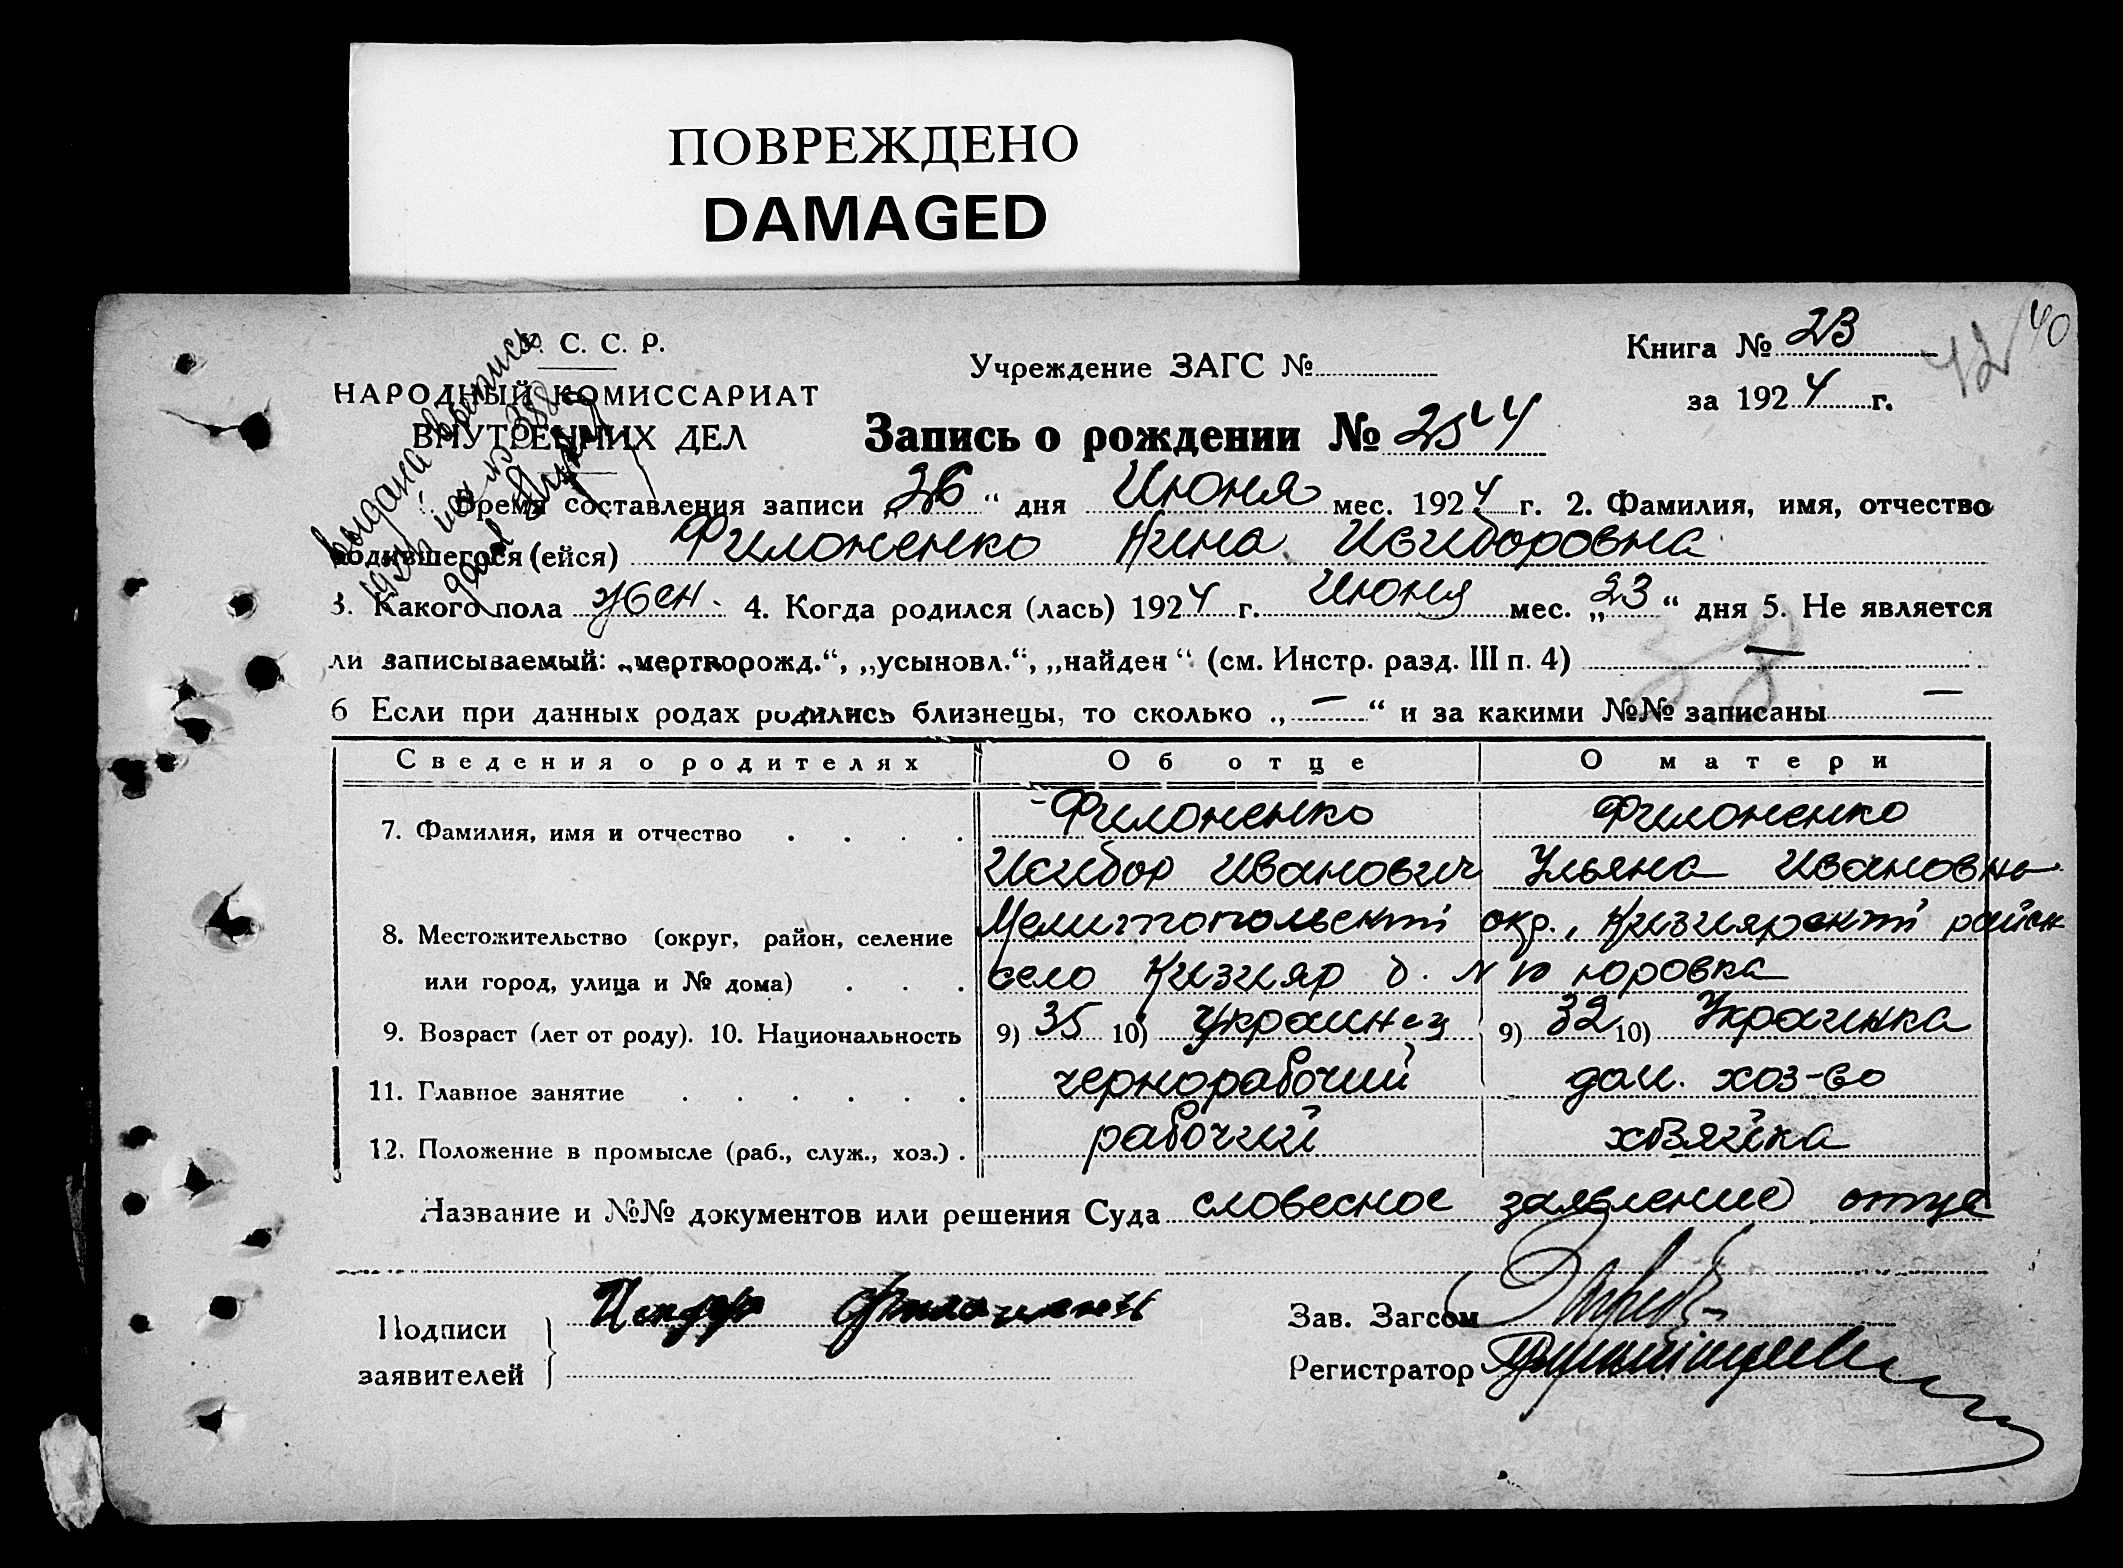 ПОВРЕЖДЕНО
DAMAGED
У. С. С. Р.
НАРОДНЫЙ КОМИССАРИАТ
ВНУТРЕННИХ ДЕЛ
Выдана выпись
Учреждение ЗАГС №
Книга № 23
за 1924 г.
42
40
Запись о рождении № 2544
Время составления записи „26“ дня Июня мес. 1924 г. 2. Фамилия, имя, отчество
родившегося (ейся) Филоненко Нина Исидоровна
3. Какого пола жен. 4. Когда родился (лась) 1924 г. Июня мес. „23“ дня 5. Не является
ли записываемый: „мертворожд.“, „усыновл.“, „найден“ (см. Инстр. разд. III п. 4) —
38
6 Если при данных родах родились близнецы, то сколько „—“ и за какими №№ записаны —
Сведения о родителях Об отце О матери
7. Фамилия, имя и отчество . . . . Филоненко Филоненко
Исидор Иванович Ульяна Ивановна
8. Местожительство (округ, район, селение Мелитопольский окр., Кизиярский район
или город, улица и № дома) . . . село Кизияр д. № 10 юровка
9. Возраст (лет от роду). 10. Национальность 9) 35 10) Украинец 9) 32 10) Украинка
11. Главное занятие . . . . . . чернорабочий дом. хоз-во
12. Положение в промысле (раб., служ., хоз.) . рабочий хозяйка
Название и №№ документов или решения Суда словесное заявление отца
Подписи
заявителей
Зав. Загсом
Регистратор